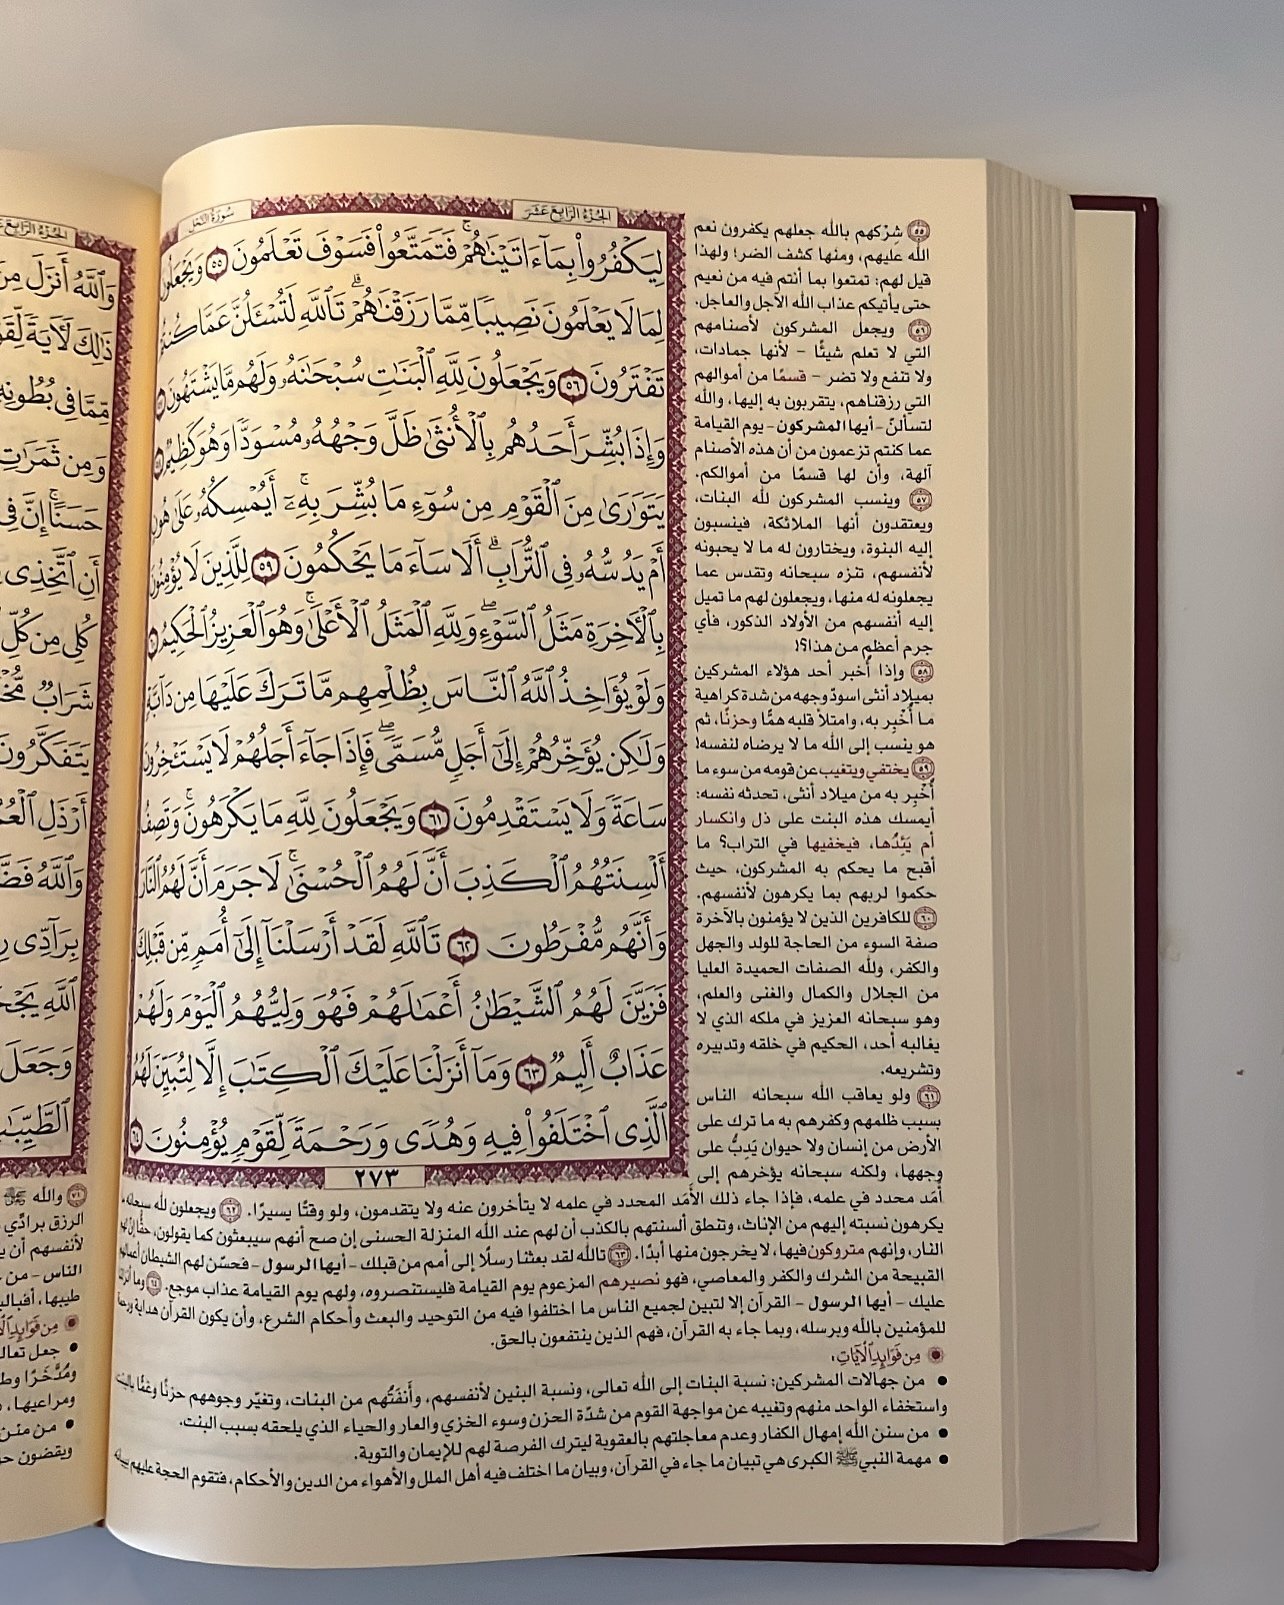 الجزء الرابع عشر
سورة النحل
لِيَكْفُرُوا۟ بِمَآ ءَاتَيْنَٰهُمْ ۚ فَتَمَتَّعُوا۟ ۖ فَسَوْفَ تَعْلَمُونَ ٥٥ وَيَجْعَلُونَ
لِمَا لَا يَعْلَمُونَ نَصِيبًا مِّمَّا رَزَقْنَٰهُمْ ۗ تَٱللَّهِ لَتُسْـَٔلُنَّ عَمَّا كُنتُمْ
تَفْتَرُونَ ٥٦ وَيَجْعَلُونَ لِلَّهِ ٱلْبَنَٰتِ سُبْحَٰنَهُۥ وَلَهُم مَّا يَشْتَهُونَ ٥٧
وَإِذَا بُشِّرَ أَحَدُهُم بِٱلْأُنثَىٰ ظَلَّ وَجْهُهُۥ مُسْوَدًّا وَهُوَ كَظِيمٌ ٥٨
يَتَوَٰرَىٰ مِنَ ٱلْقَوْمِ مِن سُوٓءِ مَا بُشِّرَ بِهِۦٓ ۚ أَيُمْسِكُهُۥ عَلَىٰ هُونٍ
أَمْ يَدُسُّهُۥ فِى ٱلتُّرَابِ ۗ أَلَا سَآءَ مَا يَحْكُمُونَ ٥٩ لِلَّذِينَ لَا يُؤْمِنُونَ
بِٱلْءَاخِرَةِ مَثَلُ ٱلسَّوْءِ ۖ وَلِلَّهِ ٱلْمَثَلُ ٱلْأَعْلَىٰ ۚ وَهُوَ ٱلْعَزِيزُ ٱلْحَكِيمُ ٦٠
وَلَوْ يُؤَاخِذُ ٱللَّهُ ٱلنَّاسَ بِظُلْمِهِم مَّا تَرَكَ عَلَيْهَا مِن دَآبَّةٍ
وَلَٰكِن يُؤَخِّرُهُمْ إِلَىٰٓ أَجَلٍ مُّسَمًّى ۖ فَإِذَا جَآءَ أَجَلُهُمْ لَا يَسْتَـْٔخِرُونَ
سَاعَةً وَلَا يَسْتَقْدِمُونَ ٦١ وَيَجْعَلُونَ لِلَّهِ مَا يَكْرَهُونَ ۚ وَتَصِفُ
أَلْسِنَتُهُمُ ٱلْكَذِبَ أَنَّ لَهُمُ ٱلْحُسْنَىٰ ۚ لَا جَرَمَ أَنَّ لَهُمُ ٱلنَّارَ
وَأَنَّهُم مُّفْرَطُونَ ٦٢ تَٱللَّهِ لَقَدْ أَرْسَلْنَآ إِلَىٰٓ أُمَمٍ مِّن قَبْلِكَ
فَزَيَّنَ لَهُمُ ٱلشَّيْطَٰنُ أَعْمَٰلَهُمْ فَهُوَ وَلِيُّهُمُ ٱلْيَوْمَ وَلَهُمْ
عَذَابٌ أَلِيمٌ ٦٣ وَمَآ أَنزَلْنَا عَلَيْكَ ٱلْكِتَٰبَ إِلَّا لِتُبَيِّنَ لَهُمُ
ٱلَّذِى ٱخْتَلَفُوا۟ فِيهِ ۙ وَهُدًى وَرَحْمَةً لِّقَوْمٍ يُؤْمِنُونَ ٦٤
٢٧٣
٥٥ شركهم بالله جعلهم يكفرون نعم
الله عليهم، ومنها كشف الضر؛ ولهذا
قيل لهم: تمتعوا بما أنتم فيه من نعيم
حتى يأتيكم عذاب الله الآجل والعاجل.
٥٦ ويجعل المشركون لأصنامهم
التي لا تعلم شيئًا - لأنها جمادات،
ولا تنفع ولا تضر - قسمًا من أموالهم
التي رزقناهم، يتقربون به إليها، والله
لتسألنّ - أيها المشركون - يوم القيامة
عما كنتم تزعمون من أن هذه الأصنام
آلهة، وأن لها قسمًا من أموالكم.
٥٧ وينسب المشركون لله البنات،
ويعتقدون أنها الملائكة، فينسبون
إليه البنوة، ويختارون له ما لا يحبونه
لأنفسهم، تنزه سبحانه وتقدس عما
يجعلونه له منها، ويجعلون لهم ما تميل
إليه أنفسهم من الأولاد الذكور، فأي
جرم أعظم من هذا؟!
٥٨ وإذا أُخبر أحد هؤلاء المشركين
بميلاد أنثى اسودّ وجهه من شدة كراهية
ما أُخْبِر به، وامتلأ قلبه همًّا وحزنًا، ثم
هو ينسب إلى الله ما لا يرضاه لنفسه!
٥٩ يختفي ويتغيب عن قومه من سوء ما
أُخْبِر به من ميلاد أنثى، تحدثه نفسه:
أيمسك هذه البنت على ذل وانكسار
أم يَئِدُها، فيخفيها في التراب؟ ما
أقبح ما يحكم به المشركون، حيث
حكموا لربهم بما يكرهون لأنفسهم.
٦٠ للكافرين الذين لا يؤمنون بالآخرة
صفة السوء من الحاجة للولد والجهل
والكفر، ولله الصفات الحميدة العليا
من الجلال والكمال والغنى والعلم،
وهو سبحانه العزيز في ملكه الذي لا
يغالبه أحد، الحكيم في خلقه وتدبيره
وتشريعه.
٦١ ولو يعاقب الله سبحانه الناس
بسبب ظلمهم وكفرهم به ما ترك على
الأرض من إنسان ولا حيوان يَدِبُّ على
وجهها، ولكنه سبحانه يؤخرهم إلى
أَمَد محدد في علمه، فإذا جاء ذلك الأَمَد المحدد في علمه لا يتأخرون عنه ولا يتقدمون، ولو وقتًا يسيرًا. ٦٢ ويجعلون لله سبحانه ما
يكرهون نسبته إليهم من الإناث، وتنطق ألسنتهم بالكذب أن لهم عند الله المنزلة الحسنى إن صح أنهم سيبعثون كما يقولون، حقًّا إنّ لهم
النار، وإنهم متروكون فيها، لا يخرجون منها أبدًا. ٦٣ تالله لقد بعثنا رسلًا إلى أمم من قبلك - أيها الرسول - فحسّن لهم الشيطان أعمالهم
القبيحة من الشرك والكفر والمعاصي، فهو نصيرهم المزعوم يوم القيامة فليستنصروه، ولهم يوم القيامة عذاب موجع. ٦٤ وما أنزلنا
عليك - أيها الرسول - القرآن إلا لتبين لجميع الناس ما اختلفوا فيه من التوحيد والبعث وأحكام الشرع، وأن يكون القرآن هداية ورحمة
للمؤمنين بالله وبرسله، وبما جاء به القرآن، فهم الذين ينتفعون بالحق.
من فوائد الآيات:
• من جهالات المشركين: نسبة البنات إلى الله تعالى، ونسبة البنين لأنفسهم، وأَنفَتُهم من البنات، وتغيّر وجوههم حزنًا وغمًّا بالبنت،
واستخفاء الواحد منهم وتغيبه عن مواجهة القوم من شدّة الحزن وسوء الخزي والعار والحياء الذي يلحقه بسبب البنت.
• من سنن الله إمهال الكفار وعدم معاجلتهم بالعقوبة ليترك الفرصة لهم للإيمان والتوبة.
• مهمة النبي ﷺ الكبرى هي تبيان ما جاء في القرآن، وبيان ما اختلف فيه أهل الملل والأهواء من الدين والأحكام، فتقوم الحجة عليهم ببيانه.
الجزء الرابع
وَٱللَّهُ أَنزَلَ مِنَ
ذَٰلِكَ لَءَايَةً لِّقَوْ
مِّمَّا فِى بُطُونِهِ
وَمِن ثَمَرَٰتِ
حَسَنًا ۗ إِنَّ فِى
أَنِ ٱتَّخِذِى
كُلِى مِن كُلِّ
شَرَابٌ مُّخْ
يَتَفَكَّرُونَ
أَرْذَلِ ٱلْعُمُ
وَٱللَّهُ فَضَّ
بِرَآدِّى رِ
ٱللَّهِ يَجْحَ
وَجَعَلَ
ٱلطَّيِّبَٰ
٧١ والله ﷻ
الرزق برادِّي
لأنفسهم أن
الناس - من
طيبها، أفبالب
من فوائد الآ
• جعل تعالى
ومُدَّخَرًا وط
ومراعيها،
• من منن
ويقضون حو